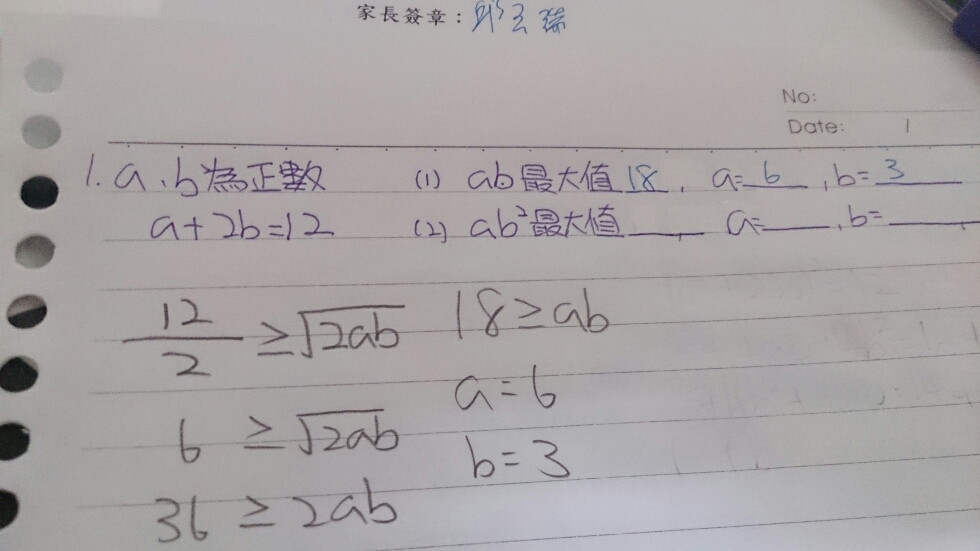 家長簽章：
No:
Date: 1
1. a、b為正數 (1) ab最大值 18 , a= 6 , b= 3
a+2b=12 (2) ab²最大值 , a= , b=
12/2 ≥ √2ab 18 ≥ ab
a=6
6 ≥ √2ab
b=3
36 ≥ 2ab